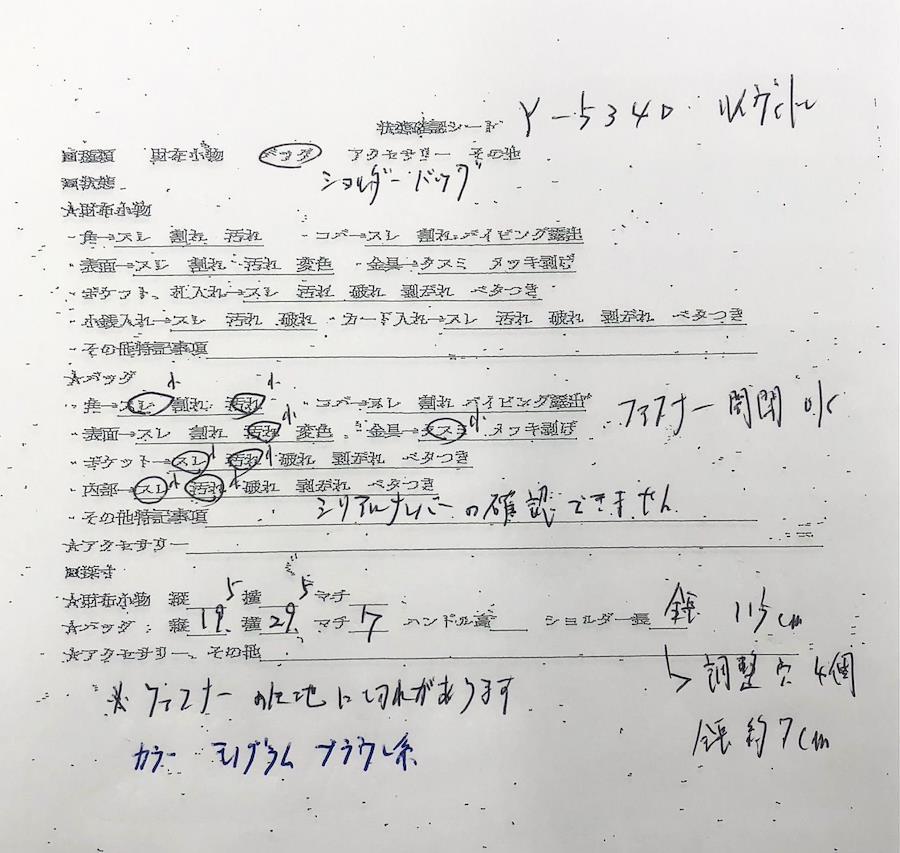 状態確認シート Y-5340 ルイヴィトン
■種類 財布小物 バッグ アクセサリー その他
■状態 ショルダーバッグ
★財布小物
・角→スレ 割れ 汚れ ・コバ→スレ 割れ パイピング露出
・表面→スレ 割れ 汚れ 変色 ・金具→クスミ メッキ剥げ
・ポケット、札入れ→スレ 汚れ 破れ 剥がれ ベタつき
・小銭入れ→スレ 汚れ 破れ ・カード入れ→スレ 汚れ 破れ 剥がれ ベタつき
・その他特記事項
★バッグ
・角→スレ小 割れ 汚れ小 ・コバ→スレ 割れ パイピング露出 ファスナー開閉 OK
・表面→スレ 割れ 汚れ小 変色 ・金具→クスミ小 メッキ剥げ
・ポケット→スレ小 汚れ小 破れ 剥がれ ベタつき
・内部→スレ小 汚れ小 破れ 剥がれ ベタつき
・その他特記事項 シリアルナンバーの確認できません
★アクセサリー
■採寸
★財布小物 縦 5 横 5 マチ
★バッグ : 縦 19 横 29 マチ 17 ハンドル高 ショルダー長 全長 115cm
★アクセサリー、その他 ↳調整穴 4個
※ファスナーの生地に切れがあります
全長約7cm
カラー モノグラム ブラウン系